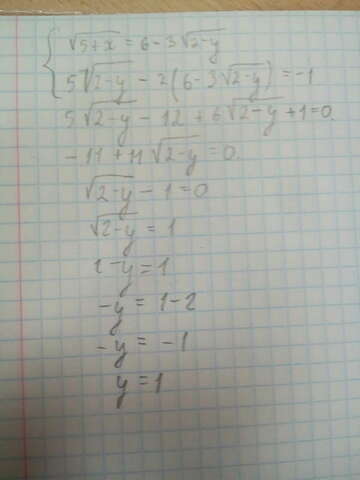 { √5+x = 6-3√2-y
5√2-y - 2(6-3√2-y) = -1
5√2-y - 12 + 6√2-y + 1 = 0
-11 + 11√2-y = 0
√2-y - 1 = 0
√2-y = 1
2-y = 1
-y = 1-2
-y = -1
y = 1